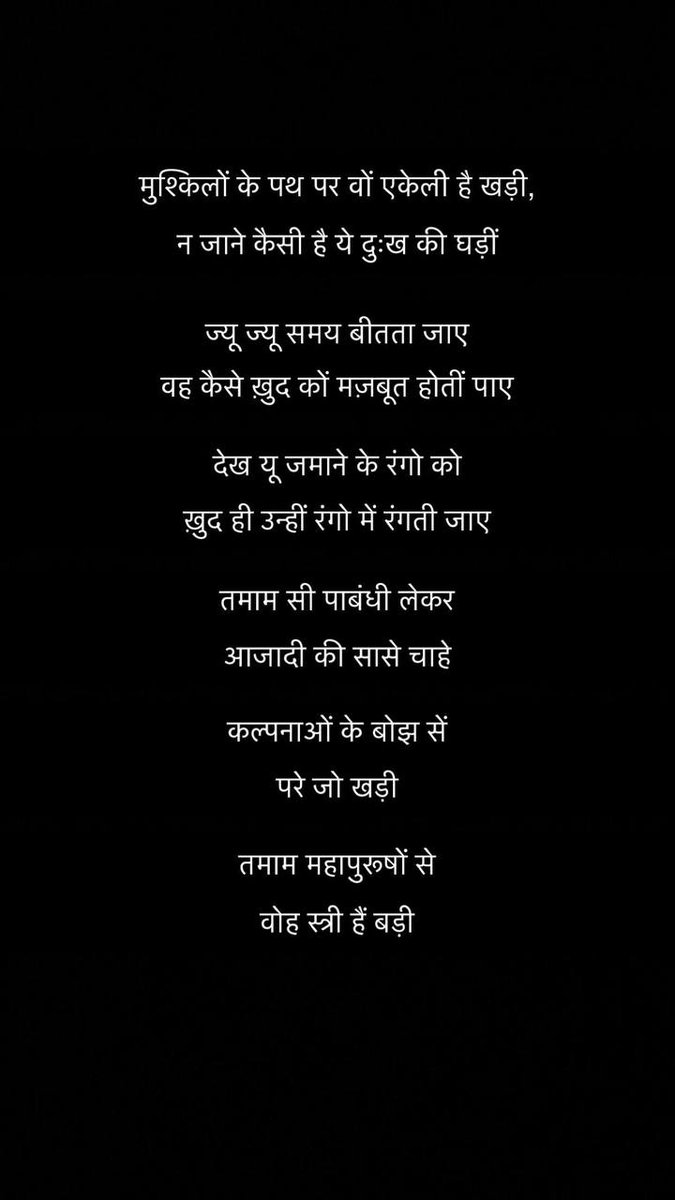 मुश्किलों के पथ पर वों एकेली है खड़ी,
न जाने कैसी है ये दुःख की घड़ीं
ज्यू ज्यू समय बीतता जाए
वह कैसे ख़ुद कों मज़बूत होतीं पाए
देख यू जमाने के रंगो को
ख़ुद ही उन्हीं रंगो में रंगती जाए
तमाम सी पाबंधी लेकर
आजादी की सासे चाहे
कल्पनाओं के बोझ सें
परे जो खड़ी
तमाम महापुरूषों से
वोह स्त्री हैं बड़ी